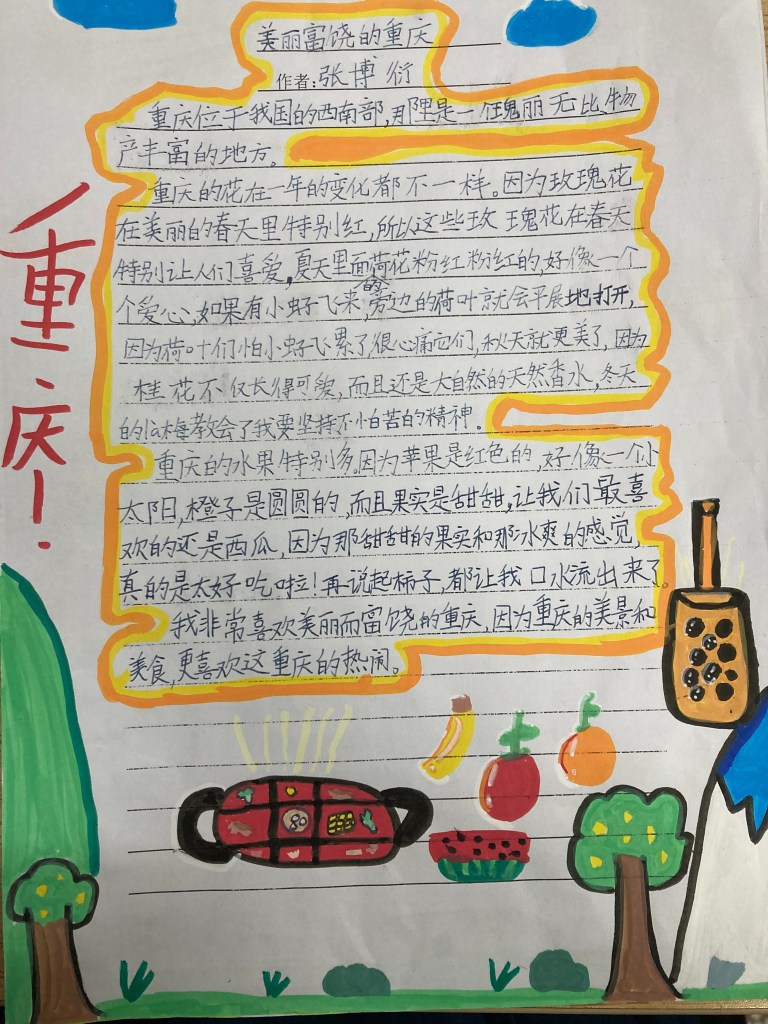 美丽富饶的重庆
作者:张博衍
重庆位于我国的西南部,那里是一个瑰丽无比,物
产丰富的地方。
重庆的花在一年的变化都不一样。因为玫瑰花
在美丽的春天里特别红,所以这些玫瑰花在春天
特别让人们喜爱,夏天里面的荷花粉红粉红的,好像一个
个爱心,如果有小虾飞来,旁边的荷叶就会平展地打开,
因为荷叶们怕小虾飞累了,很心痛它们,秋天就更美了,因为
桂花不仅长得可爱,而且还是大自然的天然香水,冬天
的腊梅教会了我要坚持不怕苦的精神。
重庆的水果特别多。因为苹果是红色的,好像一个小
太阳,橙子是圆圆的,而且果实是甜甜,让我们最喜
欢的还是西瓜,因为那甜甜的果实和那冰爽的感觉,
真的是太好吃啦!再说起柿子,都让我口水流出来了。
我非常喜欢美丽而富饶的重庆,因为重庆的美景和
美食,更喜欢这重庆的热闹。
重庆!